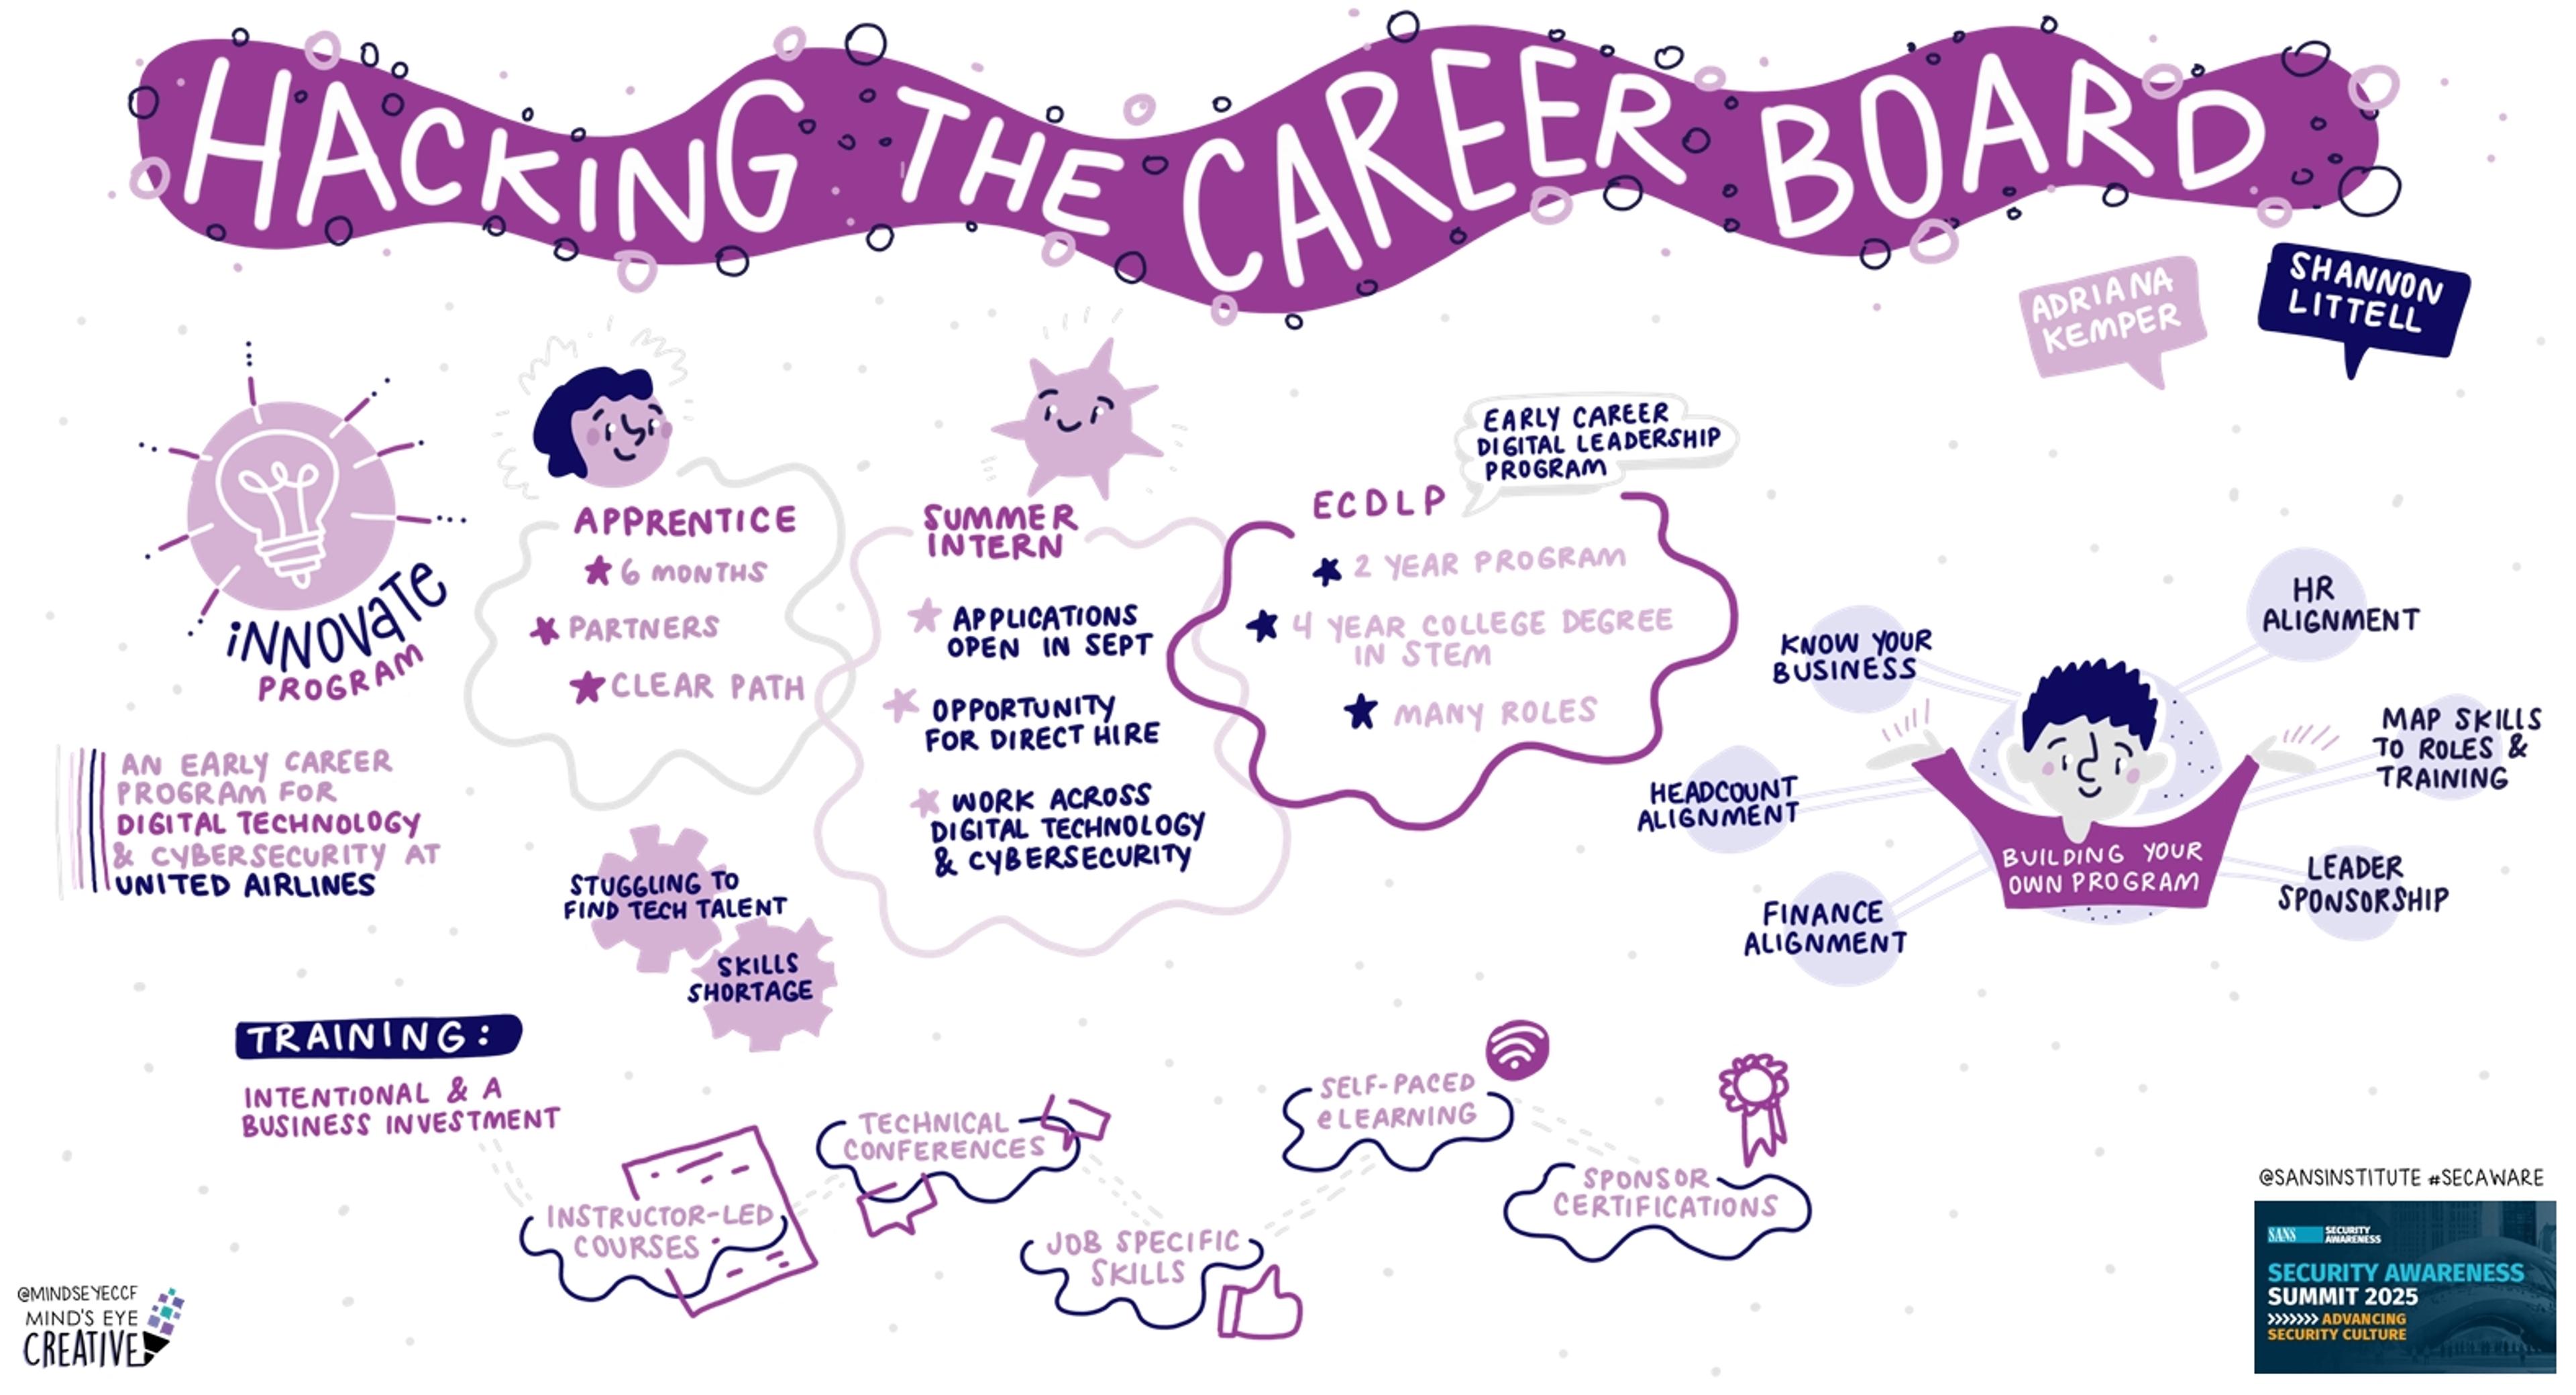 HACKING THE CAREER BOARD
ADRIANA
KEMPER
SHANNON
LITTELL
iNNOVaTE
PROGRAM
AN EARLY CAREER
PROGRAM FOR
DIGITAL TECHNOLOGY
& CYBERSECURITY AT
UNITED AIRLINES
APPRENTICE
6 MONTHS
PARTNERS
CLEAR PATH
SUMMER
INTERN
APPLICATIONS
OPEN IN SEPT
OPPORTUNITY
FOR DIRECT HIRE
WORK ACROSS
DIGITAL TECHNOLOGY
& CYBERSECURITY
EARLY CAREER
DIGITAL LEADERSHIP
PROGRAM
ECDLP
2 YEAR PROGRAM
4 YEAR COLLEGE DEGREE
IN STEM
MANY ROLES
STUGGLING TO
FIND TECH TALENT
SKILLS
SHORTAGE
KNOW YOUR
BUSINESS
HEADCOUNT
ALIGNMENT
FINANCE
ALIGNMENT
HR
ALIGNMENT
MAP SKILLS
TO ROLES &
TRAINING
LEADER
SPONSORSHIP
BUILDING YOUR
OWN PROGRAM
TRAINING:
INTENTIONAL & A
BUSINESS INVESTMENT
INSTRUCTOR-LED
COURSES
TECHNICAL
CONFERENCES
JOB SPECIFIC
SKILLS
SELF-PACED
eLEARNING
SPONSOR
CERTIFICATIONS
@MINDSEYECCF
MIND'S EYE
CREATIVE
@SANSINSTITUTE #SECAWARE
SANS SECURITY
AWARENESS
SECURITY AWARENESS
SUMMIT 2025
>>>>>>> ADVANCING
SECURITY CULTURE